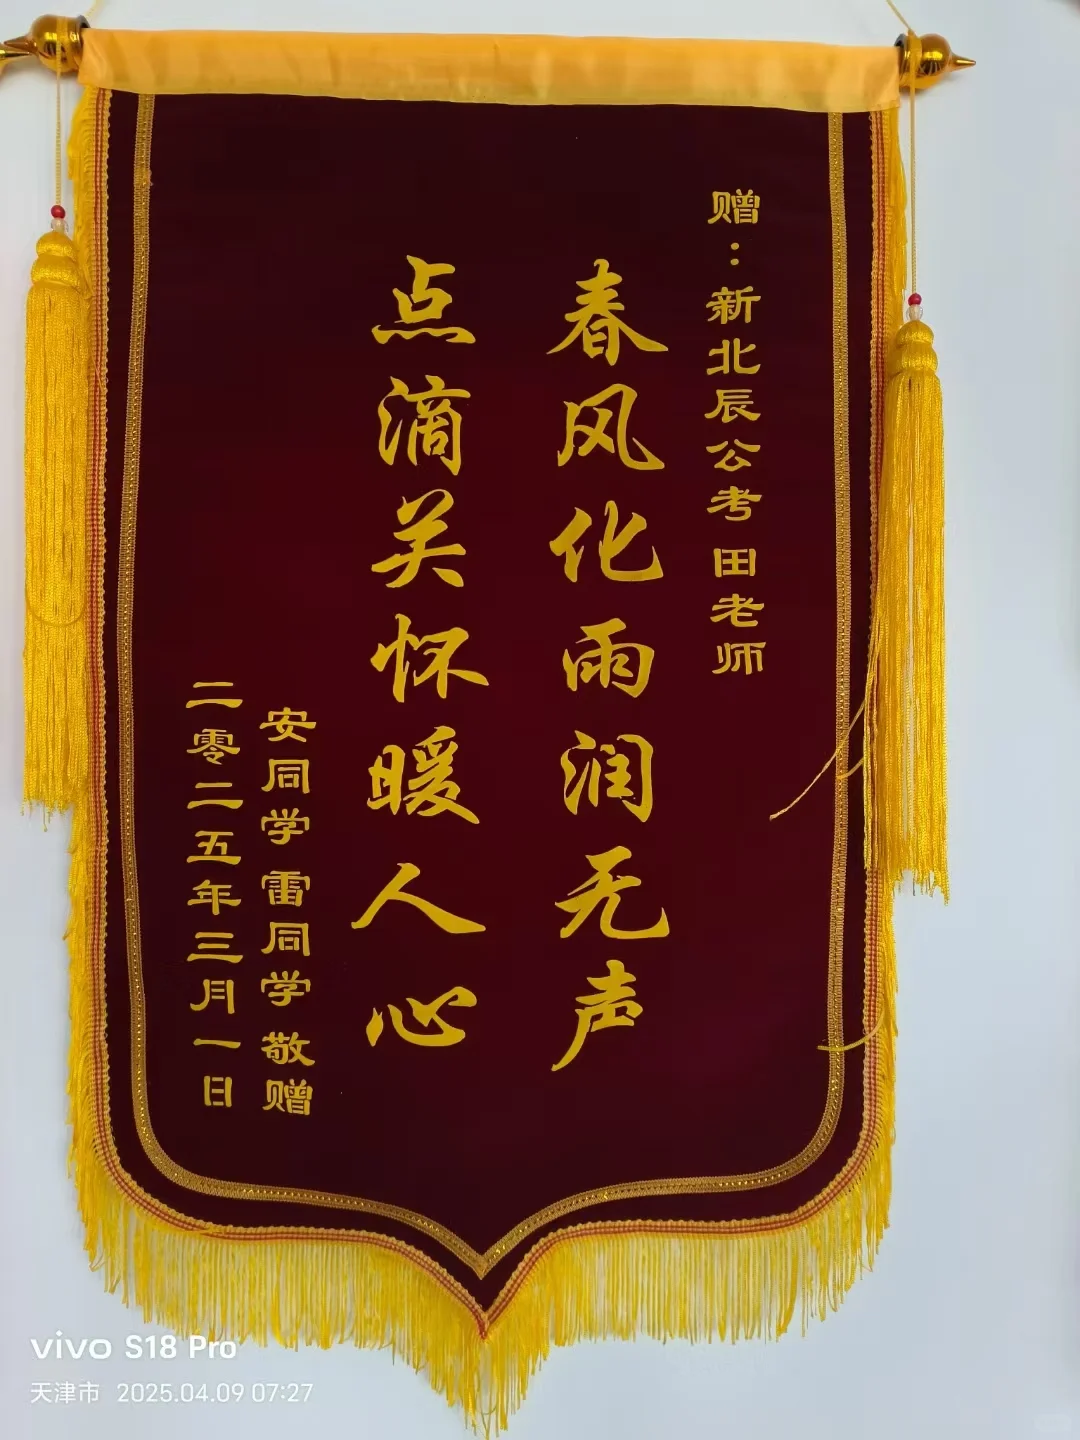 赠：新北辰公考 田老师
春风化雨润无声
点滴关怀暖人心
安同学 雷同学 敬赠
二零二五年三月一日
vivo S18 Pro
天津市 2025.04.09 07:27